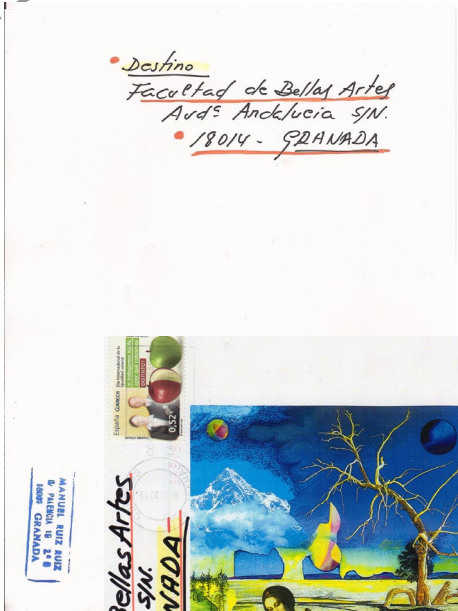 Destino
Facultad de Bellas Artes
Avdª Andalucia S/N.
18014 - GRANADA
España CORREOS
0,52€
MANUEL RUIZ RUIZ
C/ PALENCIA 16 2º B
GRANADA
Bellas Artes
S/N.
NADA-